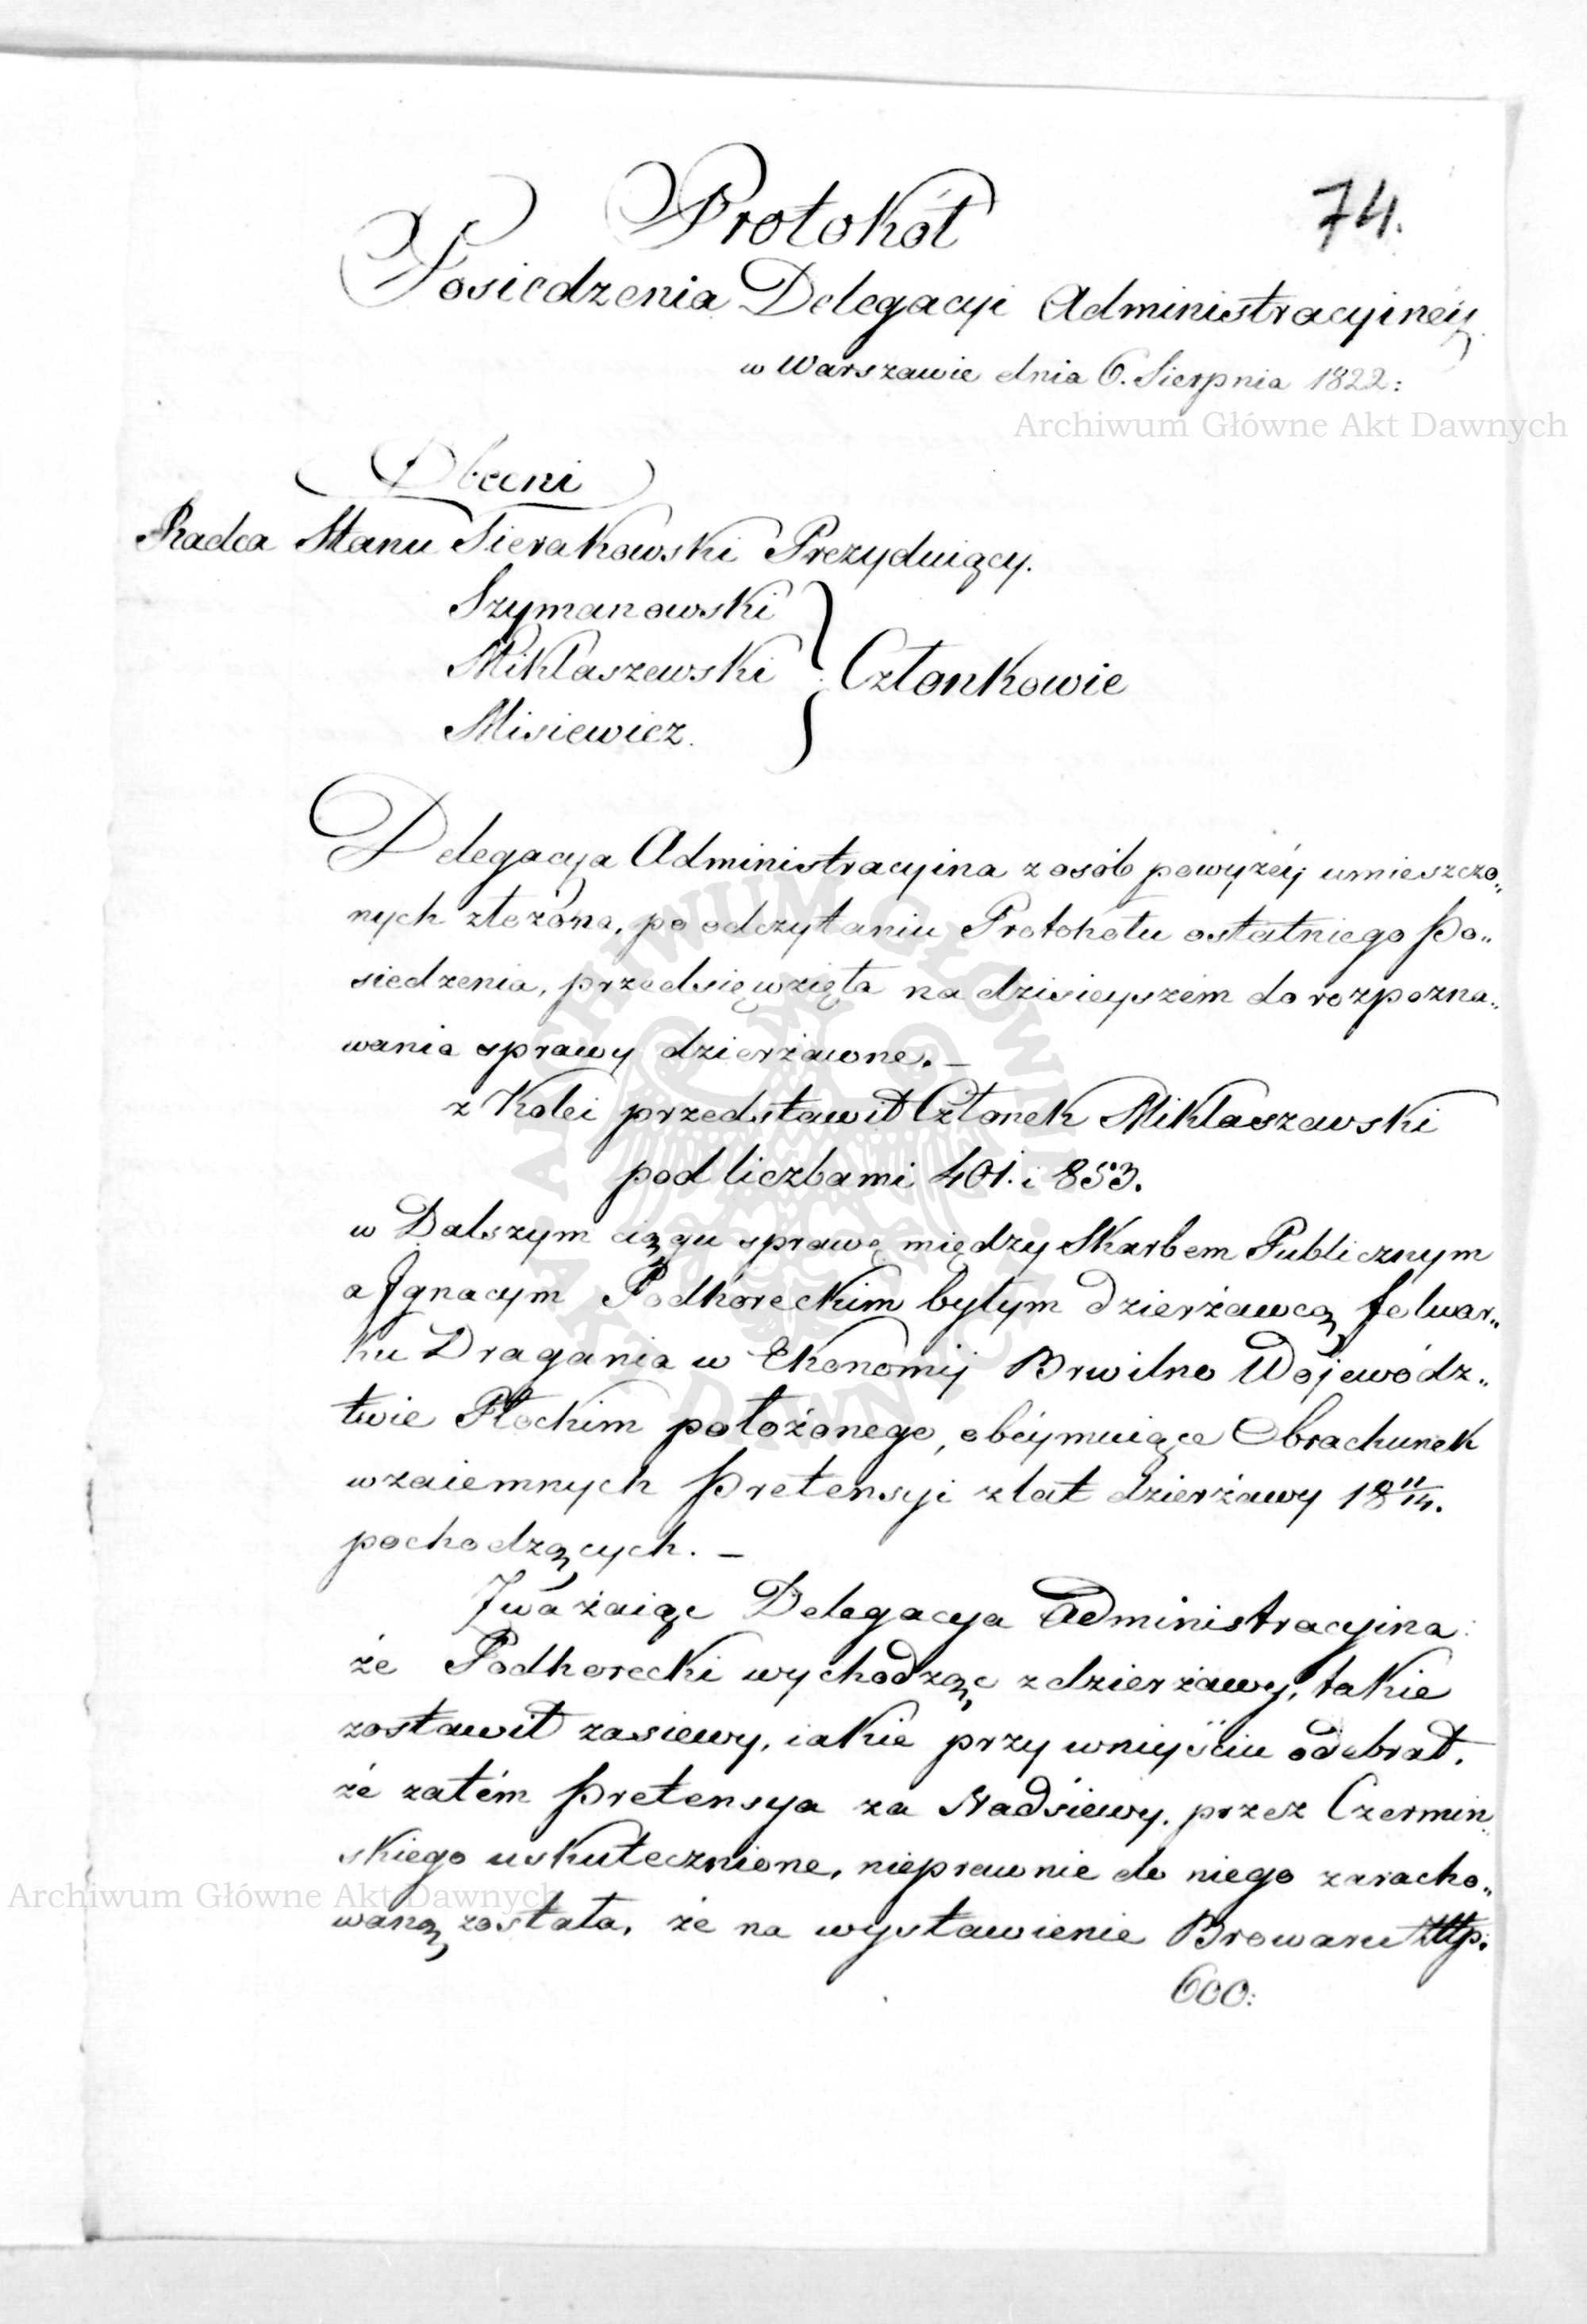 74.
Protokół
Posiedzenia Delegacyi Administracyinéy
w Warszawie dnia 6. Sierpnia 1822:
Archiwum Główne Akt Dawnych
Obecni
Radca Stanu Sierakowski Prezyduiący.
Szymanowski
Miklaszewski } Członkowie
Misiewicz.
Delegacya Administracyina z osób powyżéy umieszczo„
nych złożona, po odczytaniu Protokołu ostatniego Po„
siedzenia, przedsięwzięła na dzisieyszém do rozpozna„
wania sprawy dzierżawne. —
z Kolei przedstawił Członek Miklaszewski
pod liczbami 401. i 853.
w Dalszym ciągu sprawę między Skarbem Publicznym
a Ignacym Podhoreckim byłym dzierżawcą folwar„
ku Dragania w Ekonomij Brwilno Wojewódz„
twie Płockim położonego, obéymuiące Obrachunek
wzaiemnych Pretensyi z lat dzierżawy 18 11/14.
pochodzących. —
Zważaiąc Delegacya Administracyina:
że Podhorecki wychodząc z dzierżawy, takie
zostawił zasiewy, iakie przy wnyiściu odebrał.
że zatém Pretensya za Nadsiewy, przez Czermin„
skiego uskutecznione, nieprawnie do niego zaracho„
waną została, że na wystawienie Browaru Złłp.
600:
Archiwum Główne Akt Dawnych
ARCHIWUM GŁÓWNE AKT DAWNYCH W